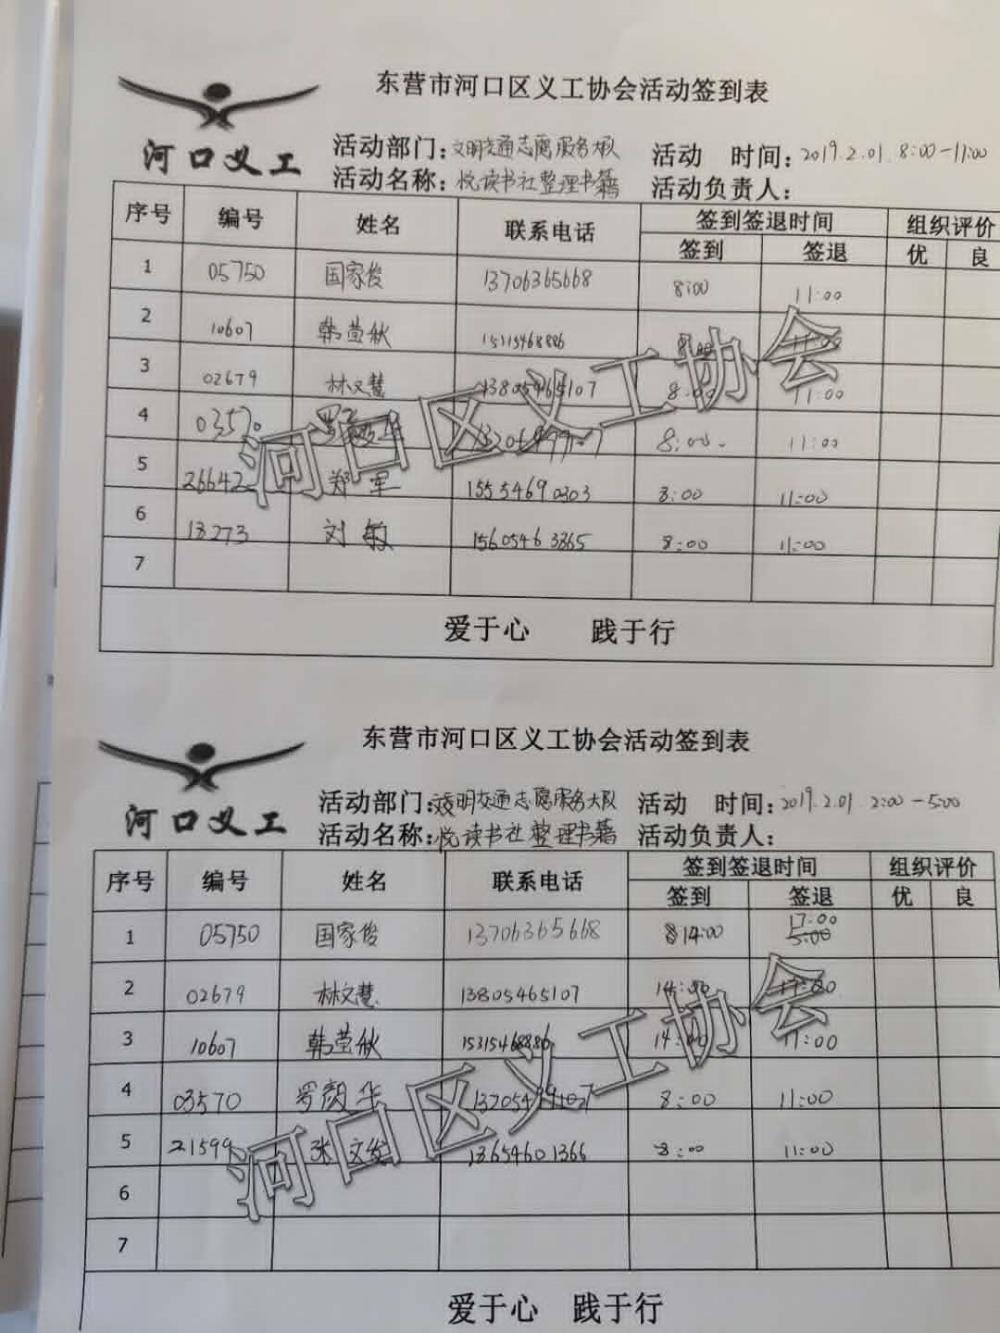 东营市河口区义工协会活动签到表
河口义工
活动部门:文明交通志愿服务大队 活动 时间:2019.2.01 8:00-11:00
活动名称:悦读书社整理书籍 活动负责人:
序号 编号 姓名 联系电话 签到签退时间 组织评价
签到 签退 优 良
1 05750 国家俊 13706365668 8:00 11:00
2 10607 韩莹秋 15315468886
3 02679 林文慧 13805465107 8:00 11:00
4 03570 8:00 11:00
5 26642 郑军 15554690303 8:00 11:00
6 18273 刘敏 15605463865 8:00 11:00
7
爱于心 践于行
河口区义工协会
东营市河口区义工协会活动签到表
河口义工
活动部门:文明交通志愿服务大队 活动 时间:2019.2.01 2:00-5:00
活动名称:悦读书社整理书籍 活动负责人:
序号 编号 姓名 联系电话 签到签退时间 组织评价
签到 签退 优 良
1 05750 国家俊 13706365668 14:00 17:00 5:00
2 02679 林文慧 13805465107 14:00 17:00
3 10607 韩莹秋 15315468886 14:00 11:00
4 03570 罗颜华 8:00 11:00
5 21599 张文俊 13654601366 8:00 11:00
6
7
爱于心 践于行
河口区义工协会